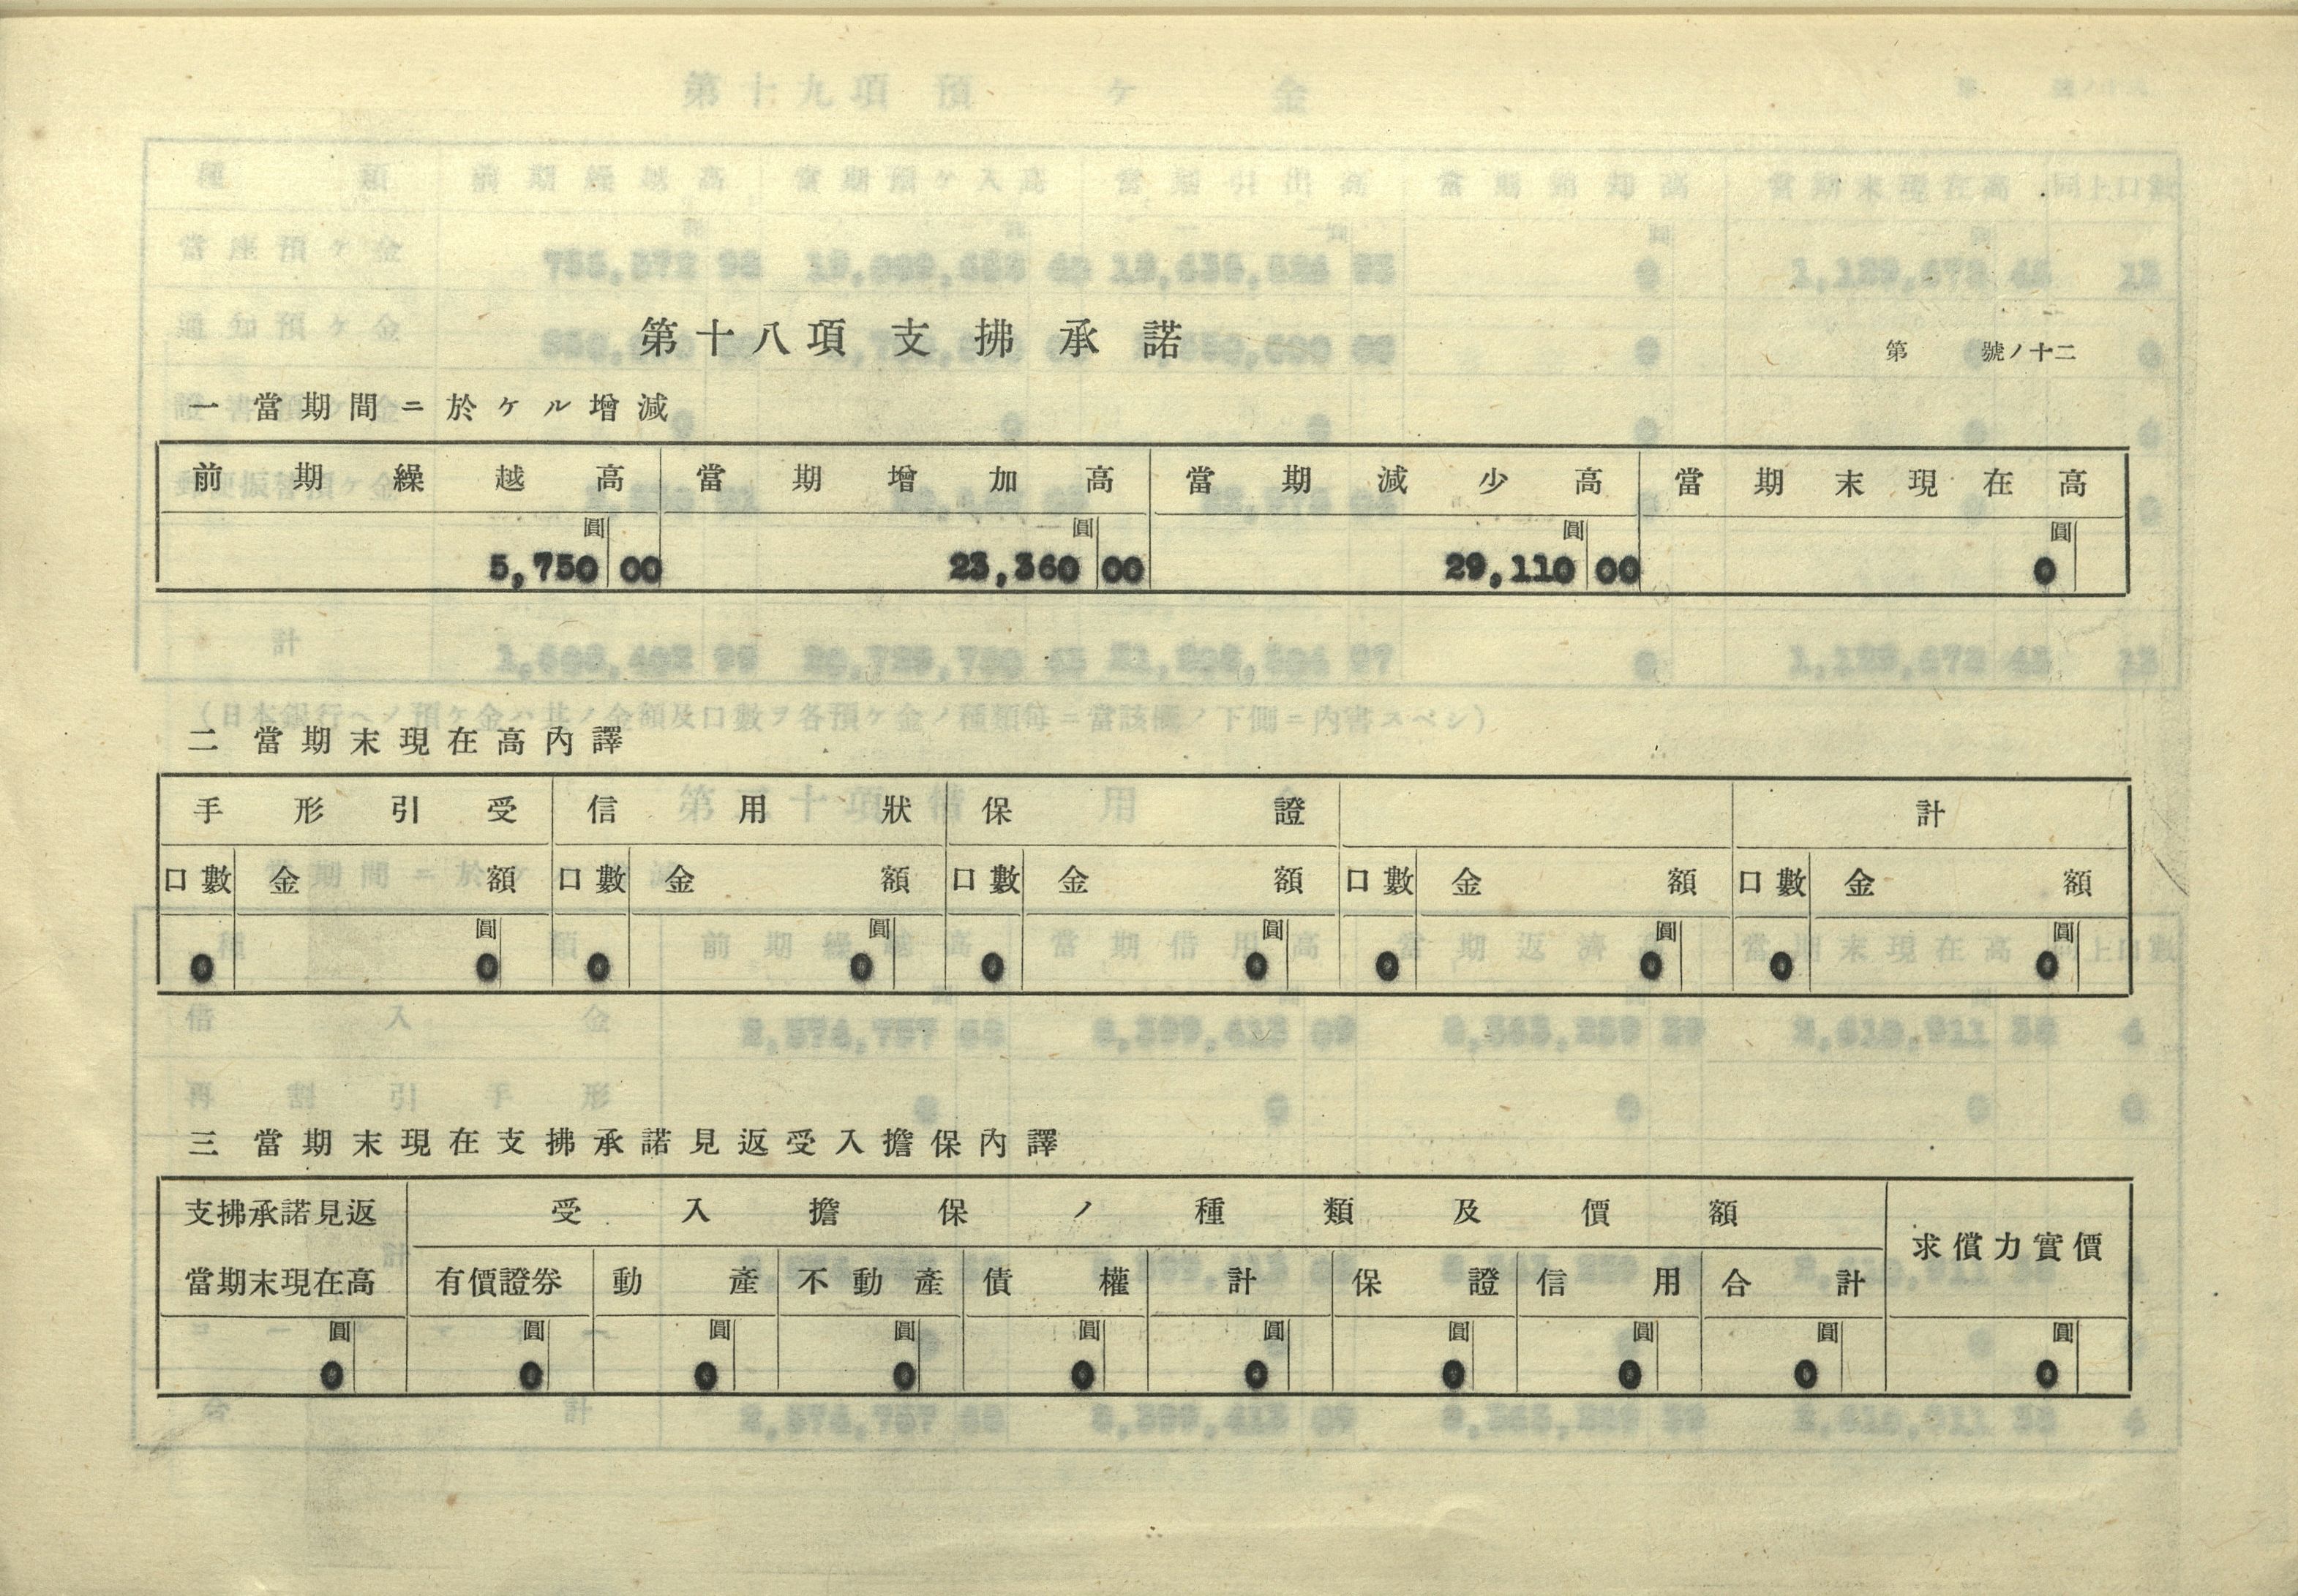 第十八項 支拂承諾
第 號ノ十二
一 當期間ニ於ケル增減
前期繰越高 當期增加高 當期減少高 當期末現在高
圓 圓 圓 圓
5,750 00 23,360 00 29,110 00 0
二 當期末現在高內譯
手形引受 信用狀 保證 計
口數 金額 口數 金額 口數 金額 口數 金額 口數 金額
圓 圓 圓 圓 圓
0 0 0 0 0 0 0 0 0 0
三 當期末現在支拂承諾見返受入擔保內譯
支拂承諾見返 受入擔保ノ種類及價額
求償力實價
當期末現在高 有價證券 動產 不動產 債權 計 保證 信用 合計
圓 圓 圓 圓 圓 圓 圓 圓 圓 圓
0 0 0 0 0 0 0 0 0 0